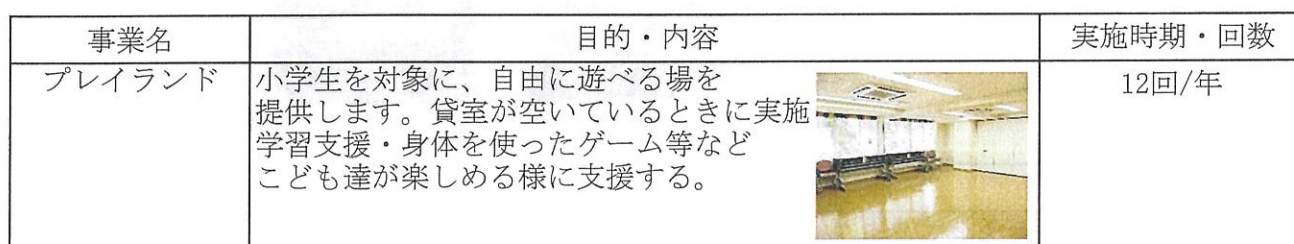 事業名 目的・内容 実施時期・回数
プレイランド 小学生を対象に、自由に遊べる場を 12回/年
提供します。貸室が空いているときに実施
学習支援・身体を使ったゲーム等など
こども達が楽しめる様に支援する。